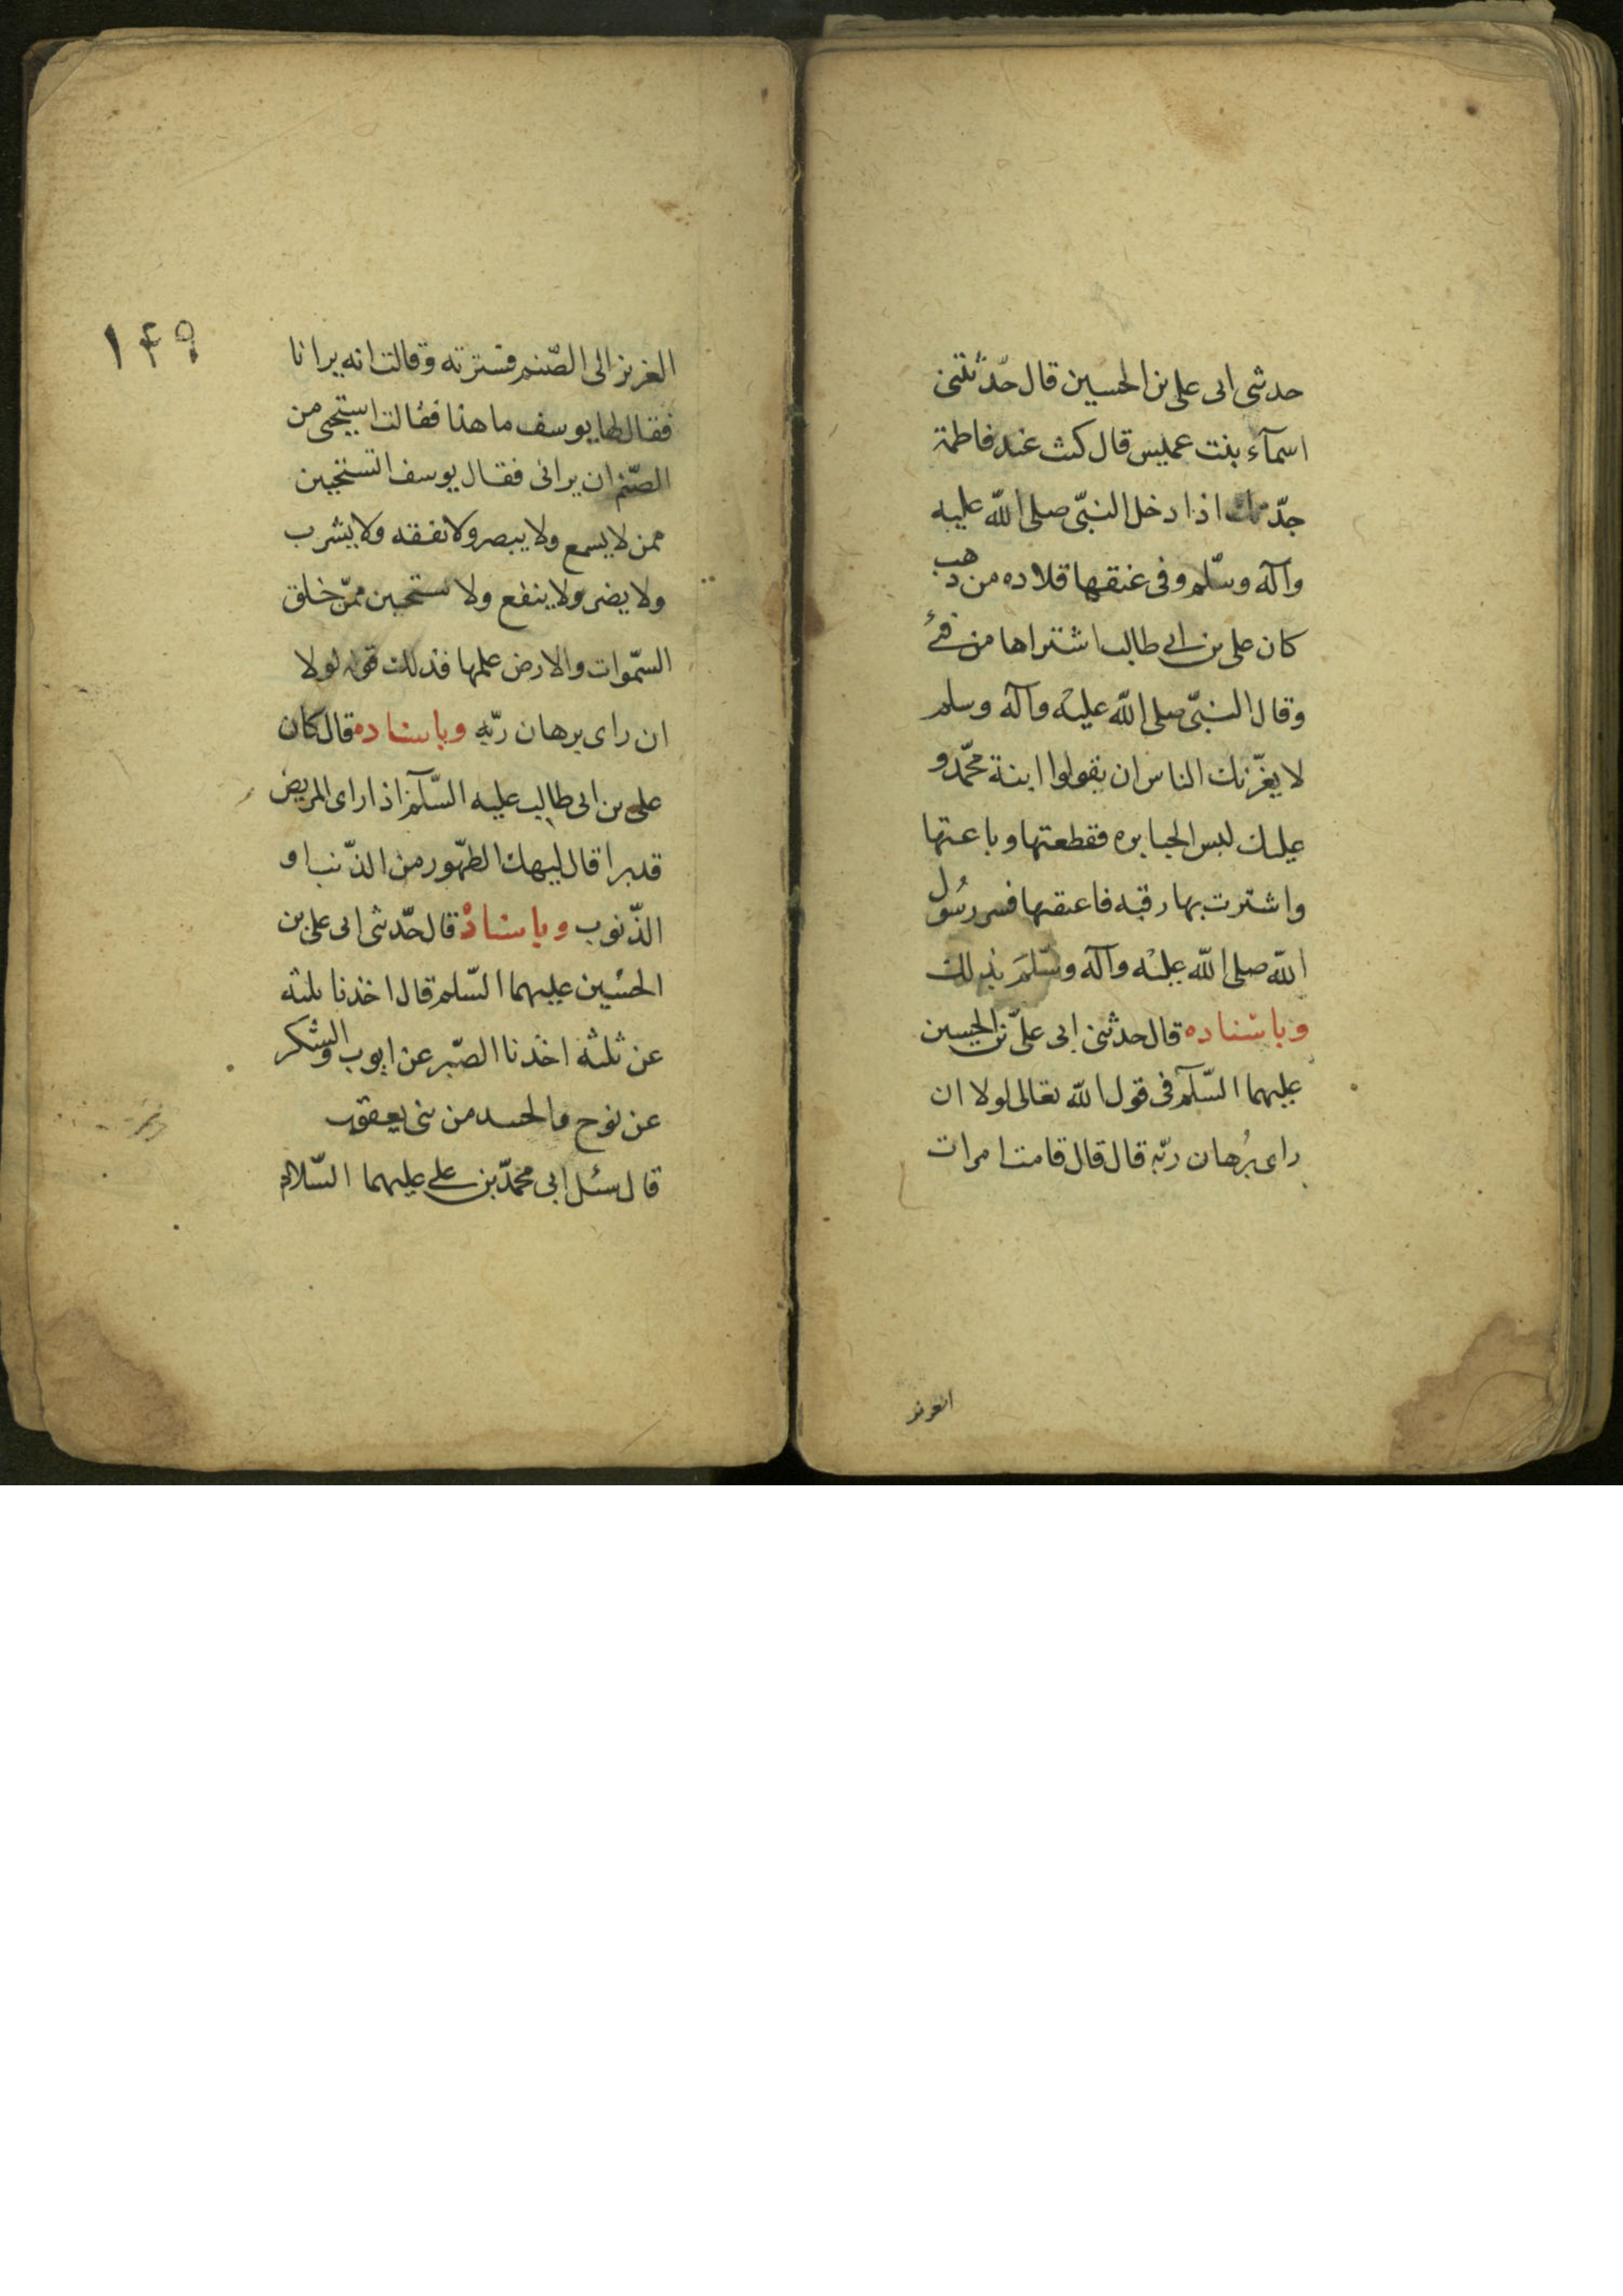 حدثنى ابى على بن الحسين قال حدّثتنى
اسمآء بنت عميس قال كنت عند فاطمة
جدّتك اذا دخل النبّى صلى الله عليه
وآله وسلّم وفى عنقها قلاده من ذهب
كان على بن ابى طالب اشتراها من فئ
وقال النبّى صلى الله عليه وآله وسلم
لا يغرّنك الناس ان يقولوا ابنة محمّد و
عليك لبس الجبابره فقطعتها وباعتها
واشترت بها رقبه فاعتقتها فسر رسُول
الله صلى الله عليْه وآله وسّلم بذلك
وباسناده قال حدثنى ابى علىّ بن الحسين
عليهما السّلام فى قول الله تعالى لولا ان
راى بُرهان ربّه قال قال قامت امرات
العزيز
١۴٩
العزيز الى الصّنم فسترته وقالت انه يرانا
فقال لها يوسف ما هذا فقالت استحيى من
الصّنم ان يرانى فقال يوسف اتستحيين
ممن لا يسمع ولا يبصر ولا نفقه ولا يشرب
ولا يضر ولا ينفع ولا تستحيين ممّن خلق
السّموات والارض علمها فذلك قوله لولا
ان راى برهان ربّه وباسناده قال كان
على بن ابى طالب عليه السّلام اذا راى المريض
قد برا قال ليهك الطهّور من الذّنب او
الذّنوب وباسناده قال حدّثنى ابى على بن
الحسين عليهما السّلم قال اخذنا ثلثه
عن ثلثه اخذنا الصّبر عن ايوب والشكر
عن نوح والحسد من بنى يعقوب
قال سئل ابى محمّد بن على عليهما السّلام